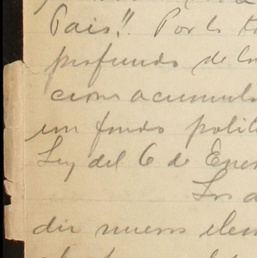 Pais!! Por lo
profundo de lo
cion acumul
un fondo polit
Ley del 6 de Ener
Los
dir nuevos elem